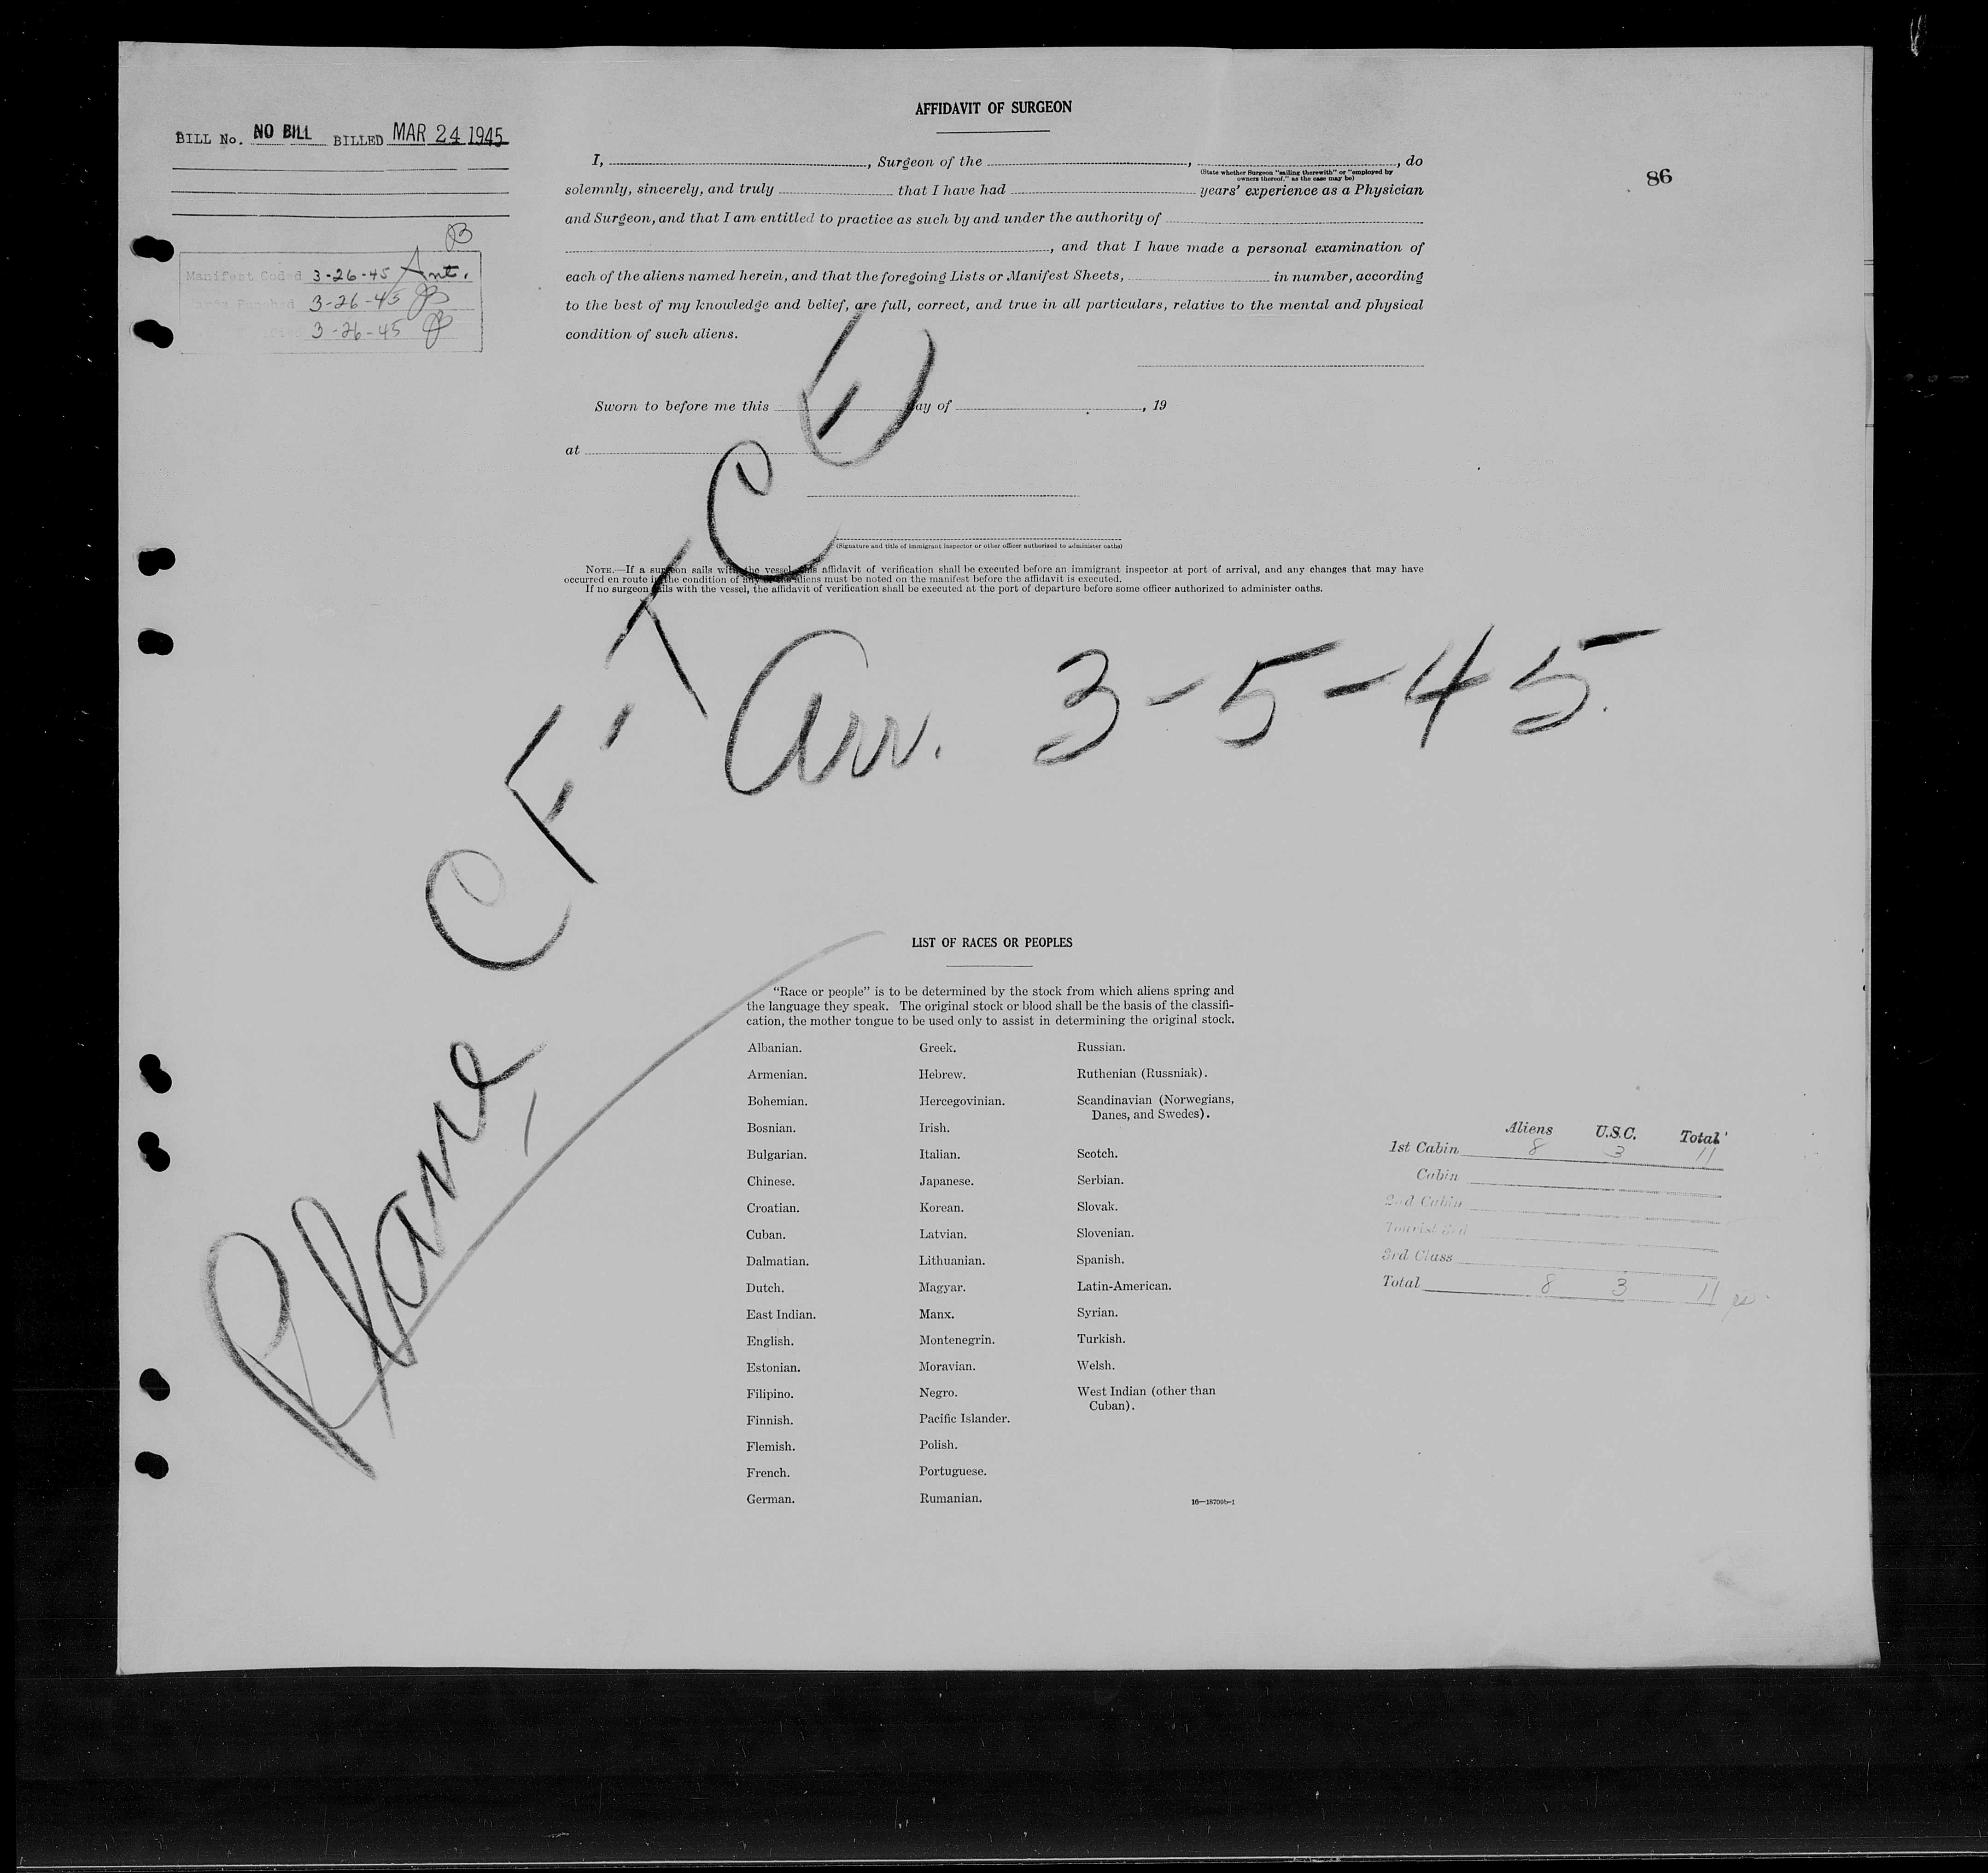 AFFIDAVIT OF SURGEON
BILL No. NO BILL BILLED MAR 24 1945
86
I, , Surgeon of the , , do
(State whether Surgeon "sailing therewith" or "employed by
owners thereof," as the case may be)
solemnly, sincerely, and truly that I have had years' experience as a Physician
and Surgeon, and that I am entitled to practice as such by and under the authority of
, and that I have made a personal examination of
each of the aliens named herein, and that the foregoing Lists or Manifest Sheets, in number, according
to the best of my knowledge and belief, are full, correct, and true in all particulars, relative to the mental and physical
condition of such aliens.
Manifest Coded 3-26-45 Ant.
Punched 3-26-45
3-26-45
Sworn to before me this day of , 19
at
(Signature and title of immigrant inspector or other officer authorized to administer oaths)
NOTE.—If a surgeon sails with the vessel, this affidavit of verification shall be executed before an immigrant inspector at port of arrival, and any changes that may have
occurred en route in the condition of any of the aliens must be noted on the manifest before the affidavit is executed.
If no surgeon sails with the vessel, the affidavit of verification shall be executed at the port of departure before some officer authorized to administer oaths.
Plane CF-TCE
Arr. 3-5-45.
LIST OF RACES OR PEOPLES
"Race or people" is to be determined by the stock from which aliens spring and
the language they speak. The original stock or blood shall be the basis of the classifi-
cation, the mother tongue to be used only to assist in determining the original stock.
Albanian.
Armenian.
Bohemian.
Bosnian.
Bulgarian.
Chinese.
Croatian.
Cuban.
Dalmatian.
Dutch.
East Indian.
English.
Estonian.
Filipino.
Finnish.
Flemish.
French.
German.
Greek.
Hebrew.
Hercegovinian.
Irish.
Italian.
Japanese.
Korean.
Latvian.
Lithuanian.
Magyar.
Manx.
Montenegrin.
Moravian.
Negro.
Pacific Islander.
Polish.
Portuguese.
Rumanian.
Russian.
Ruthenian (Russniak).
Scandinavian (Norwegians,
Danes, and Swedes).
Scotch.
Serbian.
Slovak.
Slovenian.
Spanish.
Latin-American.
Syrian.
Turkish.
Welsh.
West Indian (other than
Cuban).
16—18709b-1
Aliens U.S.C. Total
1st Cabin 8 3 11
Cabin
2nd Cabin
Tourist 3rd
3rd Class
Total 8 3 11